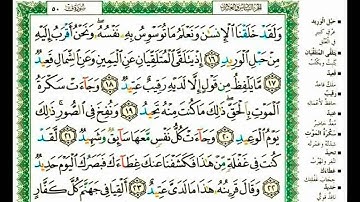 سورة ق ٥٠
وَلَقَدْ خَلَقْنَا الْإِنسَانَ وَنَعْلَمُ مَا تُوَسْوِسُ بِهِ نَفْسُهُ وَنَحْنُ أَقْرَبُ إِلَيْهِ
مِنْ حَبْلِ الْوَرِيدِ ١٦ إِذْ يَتَلَقَّى الْمُتَلَقِّيَانِ عَنِ الْيَمِينِ وَعَنِ الشِّمَالِ قَعِيدٌ
١٧ مَّا يَلْفِظُ مِن قَوْلٍ إِلَّا لَدَيْهِ رَقِيبٌ عَتِيدٌ ١٨ وَجَاءَتْ سَكْرَةُ
الْمَوْتِ بِالْحَقِّ ذَٰلِكَ مَا كُنتَ مِنْهُ تَحِيدُ ١٩ وَنُفِخَ فِي الصُّورِ ذَٰلِكَ
يَوْمُ الْوَعِيدِ ٢٠ وَجَاءَتْ كُلُّ نَفْسٍ مَّعَهَا سَائِقٌ وَشَهِيدٌ ٢١ لَّقَدْ
كُنتَ فِي غَفْلَةٍ مِّنْ هَٰذَا فَكَشَفْنَا عَنكَ غِطَاءَكَ فَبَصَرُكَ الْيَوْمَ حَدِيدٌ
٢٢ وَقَالَ قَرِينُهُ هَٰذَا مَا لَدَيَّ عَتِيدٌ ٢٣ أَلْقِيَا فِي جَهَنَّمَ كُلَّ كَفَّارٍ
حبل الوريد
يتلقى المتلقيان
قعيد
رقيب
عتيد
سكرة الموت
تحيد
غطاءك
حديد